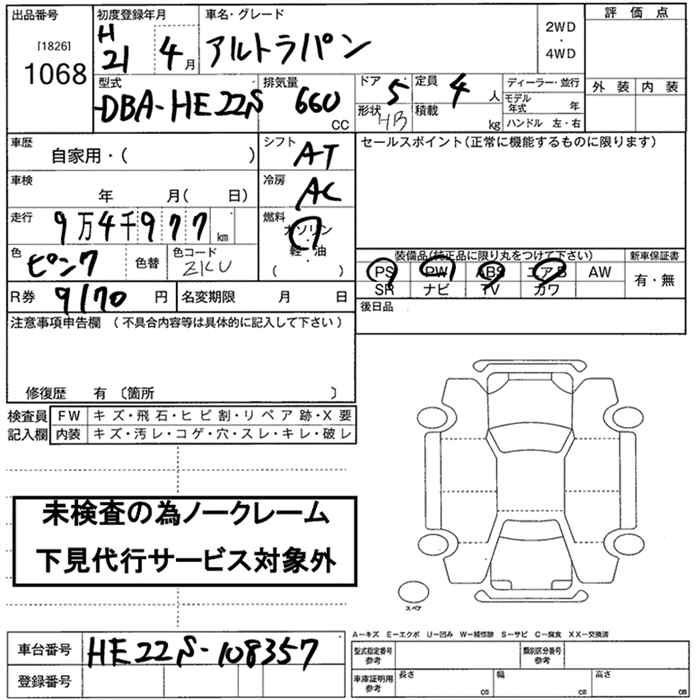 出品番号 初度登録年月 車名・グレード 評価点
[1826] 1068
H 21 4月 アルトラパン 2WD・4WD
型式 排気量 ドア 定員 ディーラー・並行 外装 内装
DBA-HE22S 660 CC 5 4人 モデル年式 年
形状 HB 積載 kg ハンドル 左・右
車歴 自家用・( ) シフト AT セールスポイント(正常に機能するものに限ります)
車検 年 月( 日) 冷房 AC
走行 9万4千977km 燃料 ガソリン
軽・油
( ・ )
色 ピンク 色替 色コード ZKU
装備品(純正品に限り丸をつけて下さい) 新車保証書
PS PW ABS エアB AW 有・無
SR ナビ TV カワ
R券 9170円 名変期限 月 日 後日品
注意事項申告欄 (不具合内容等は具体的に記入して下さい)
修復歴 有 〔箇所 〕
検査員 FW キズ・飛石・ヒビ割・リペア跡・X要
記入欄 内装 キズ・汚レ・コゲ・穴・スレ・キレ・破レ
未検査の為ノークレーム
下見代行サービス対象外
スペア
A―キズ E―エクボ U―凹み W―補修跡 S―サビ C―腐食 XX―交換済
車台番号 HE22S-108357
登録番号
型式指定番号 参考 類別区分番号 参考
車庫証明用 参考 長さ cm 幅 cm 高さ cm